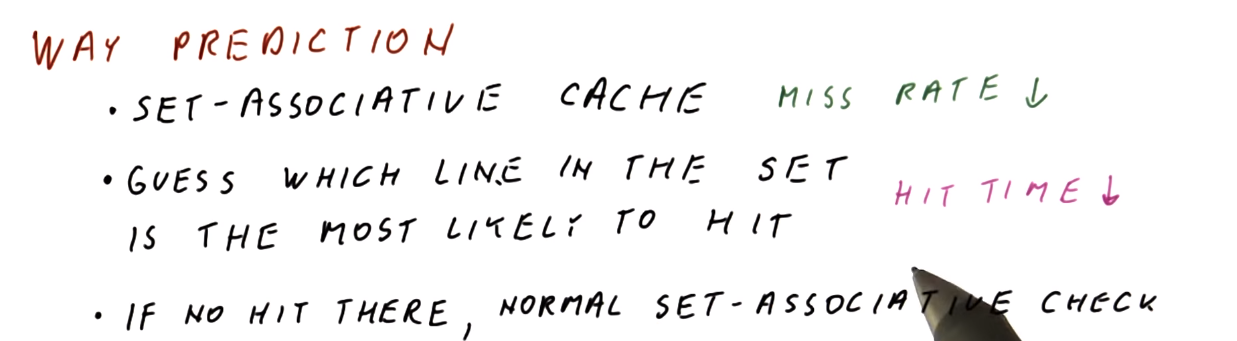 WAY PREDICTION
• SET-ASSOCIATIVE CACHE MISS RATE ↓
• GUESS WHICH LINE IN THE SET
IS THE MOST LIKELY TO HIT
HIT TIME ↓
• IF NO HIT THERE, NORMAL SET-ASSOCIATIVE CHECK